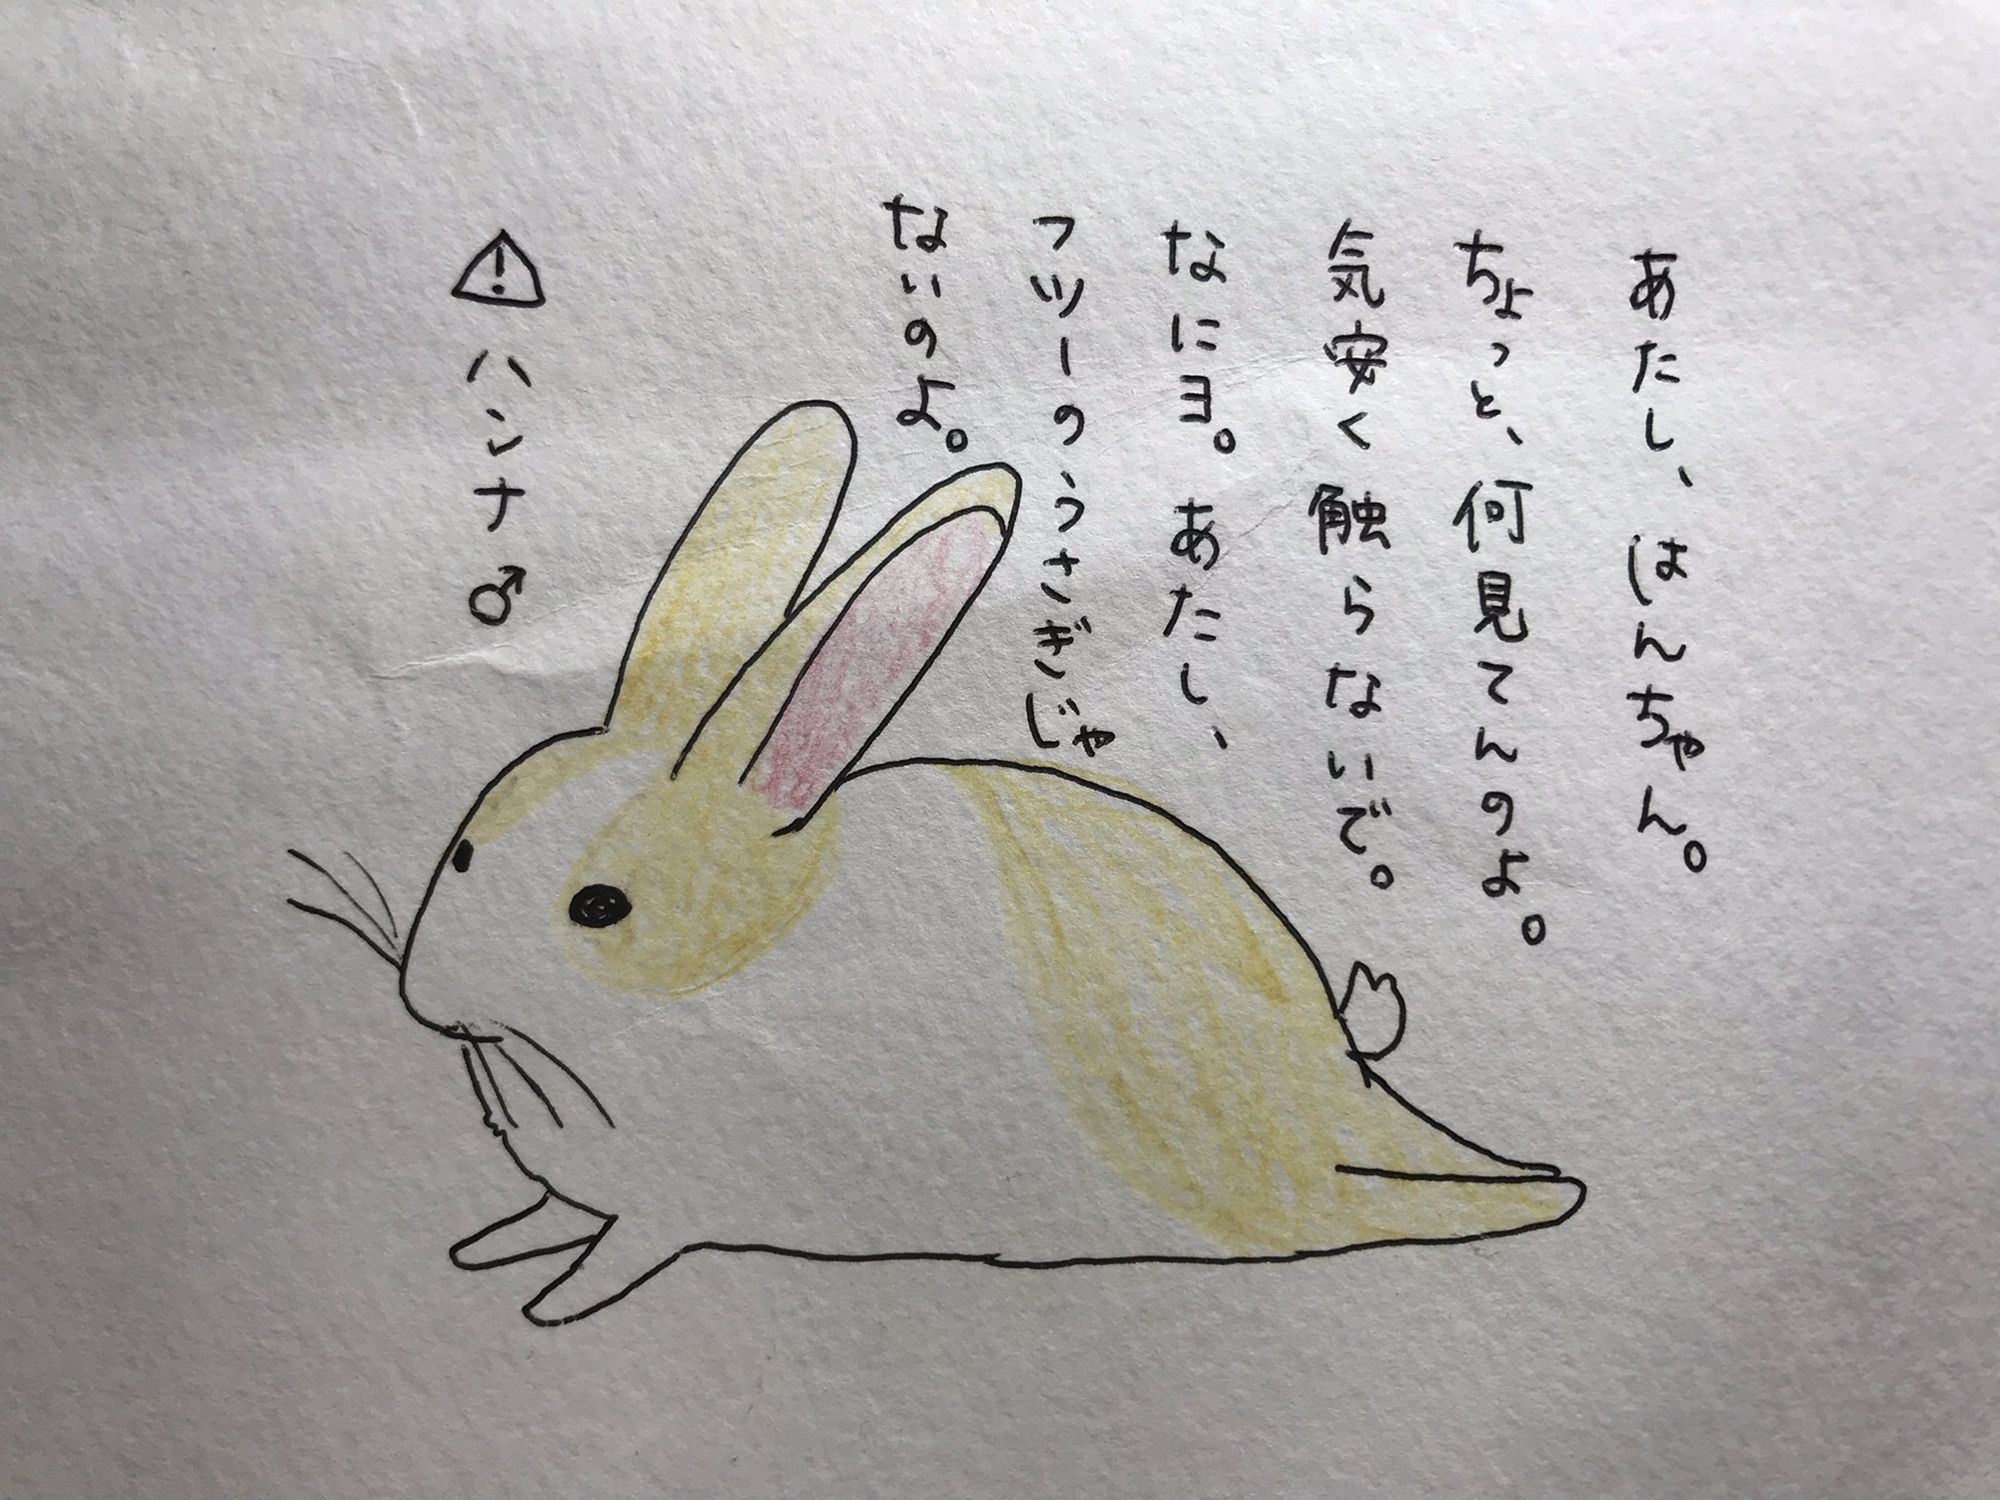 あたし、はんちゃん。
ちょっと、何見てんのよ。
気安く触らないで。
なにヨ。あたし、
フツーのうさぎじゃ
ないのよ。
⚠ハンナ♂